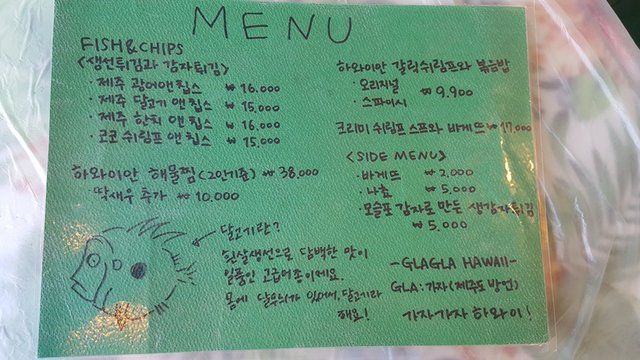 MENU
FISH&CHIPS
<생선튀김과 감자튀김>
· 제주 광어앤칩스 ₩16.000
· 제주 달고기 앤 칩스 ₩15.000
· 제주 한치 앤 칩스 ₩16.000
· 코코 쉬림프 앤 칩스 ₩15.000
하와이안 해물찜 (2인기준) ₩38.000
- 딱새우 추가 ₩10.000
하와이안 갈릭쉬림프와 볶음밥
· 오리지널
· 스파이시 ₩9.900
크리미 쉬림프 스프와 바게뜨 ₩17.000
<SIDE MENU>
· 바게뜨 ₩2,000
· 나쵸 ₩5,000
· 모슬포 감자로 만든 생감자튀김
₩5,000
달고기란?
흰살생선으로 담백한 맛이
일품인 고급어종이에요.
몸에 달무늬가 있어서, 달고기라
해요!
-GLAGLA HAWAII-
GLA: 가자 (제주도 방언)
가자가자 하와이!